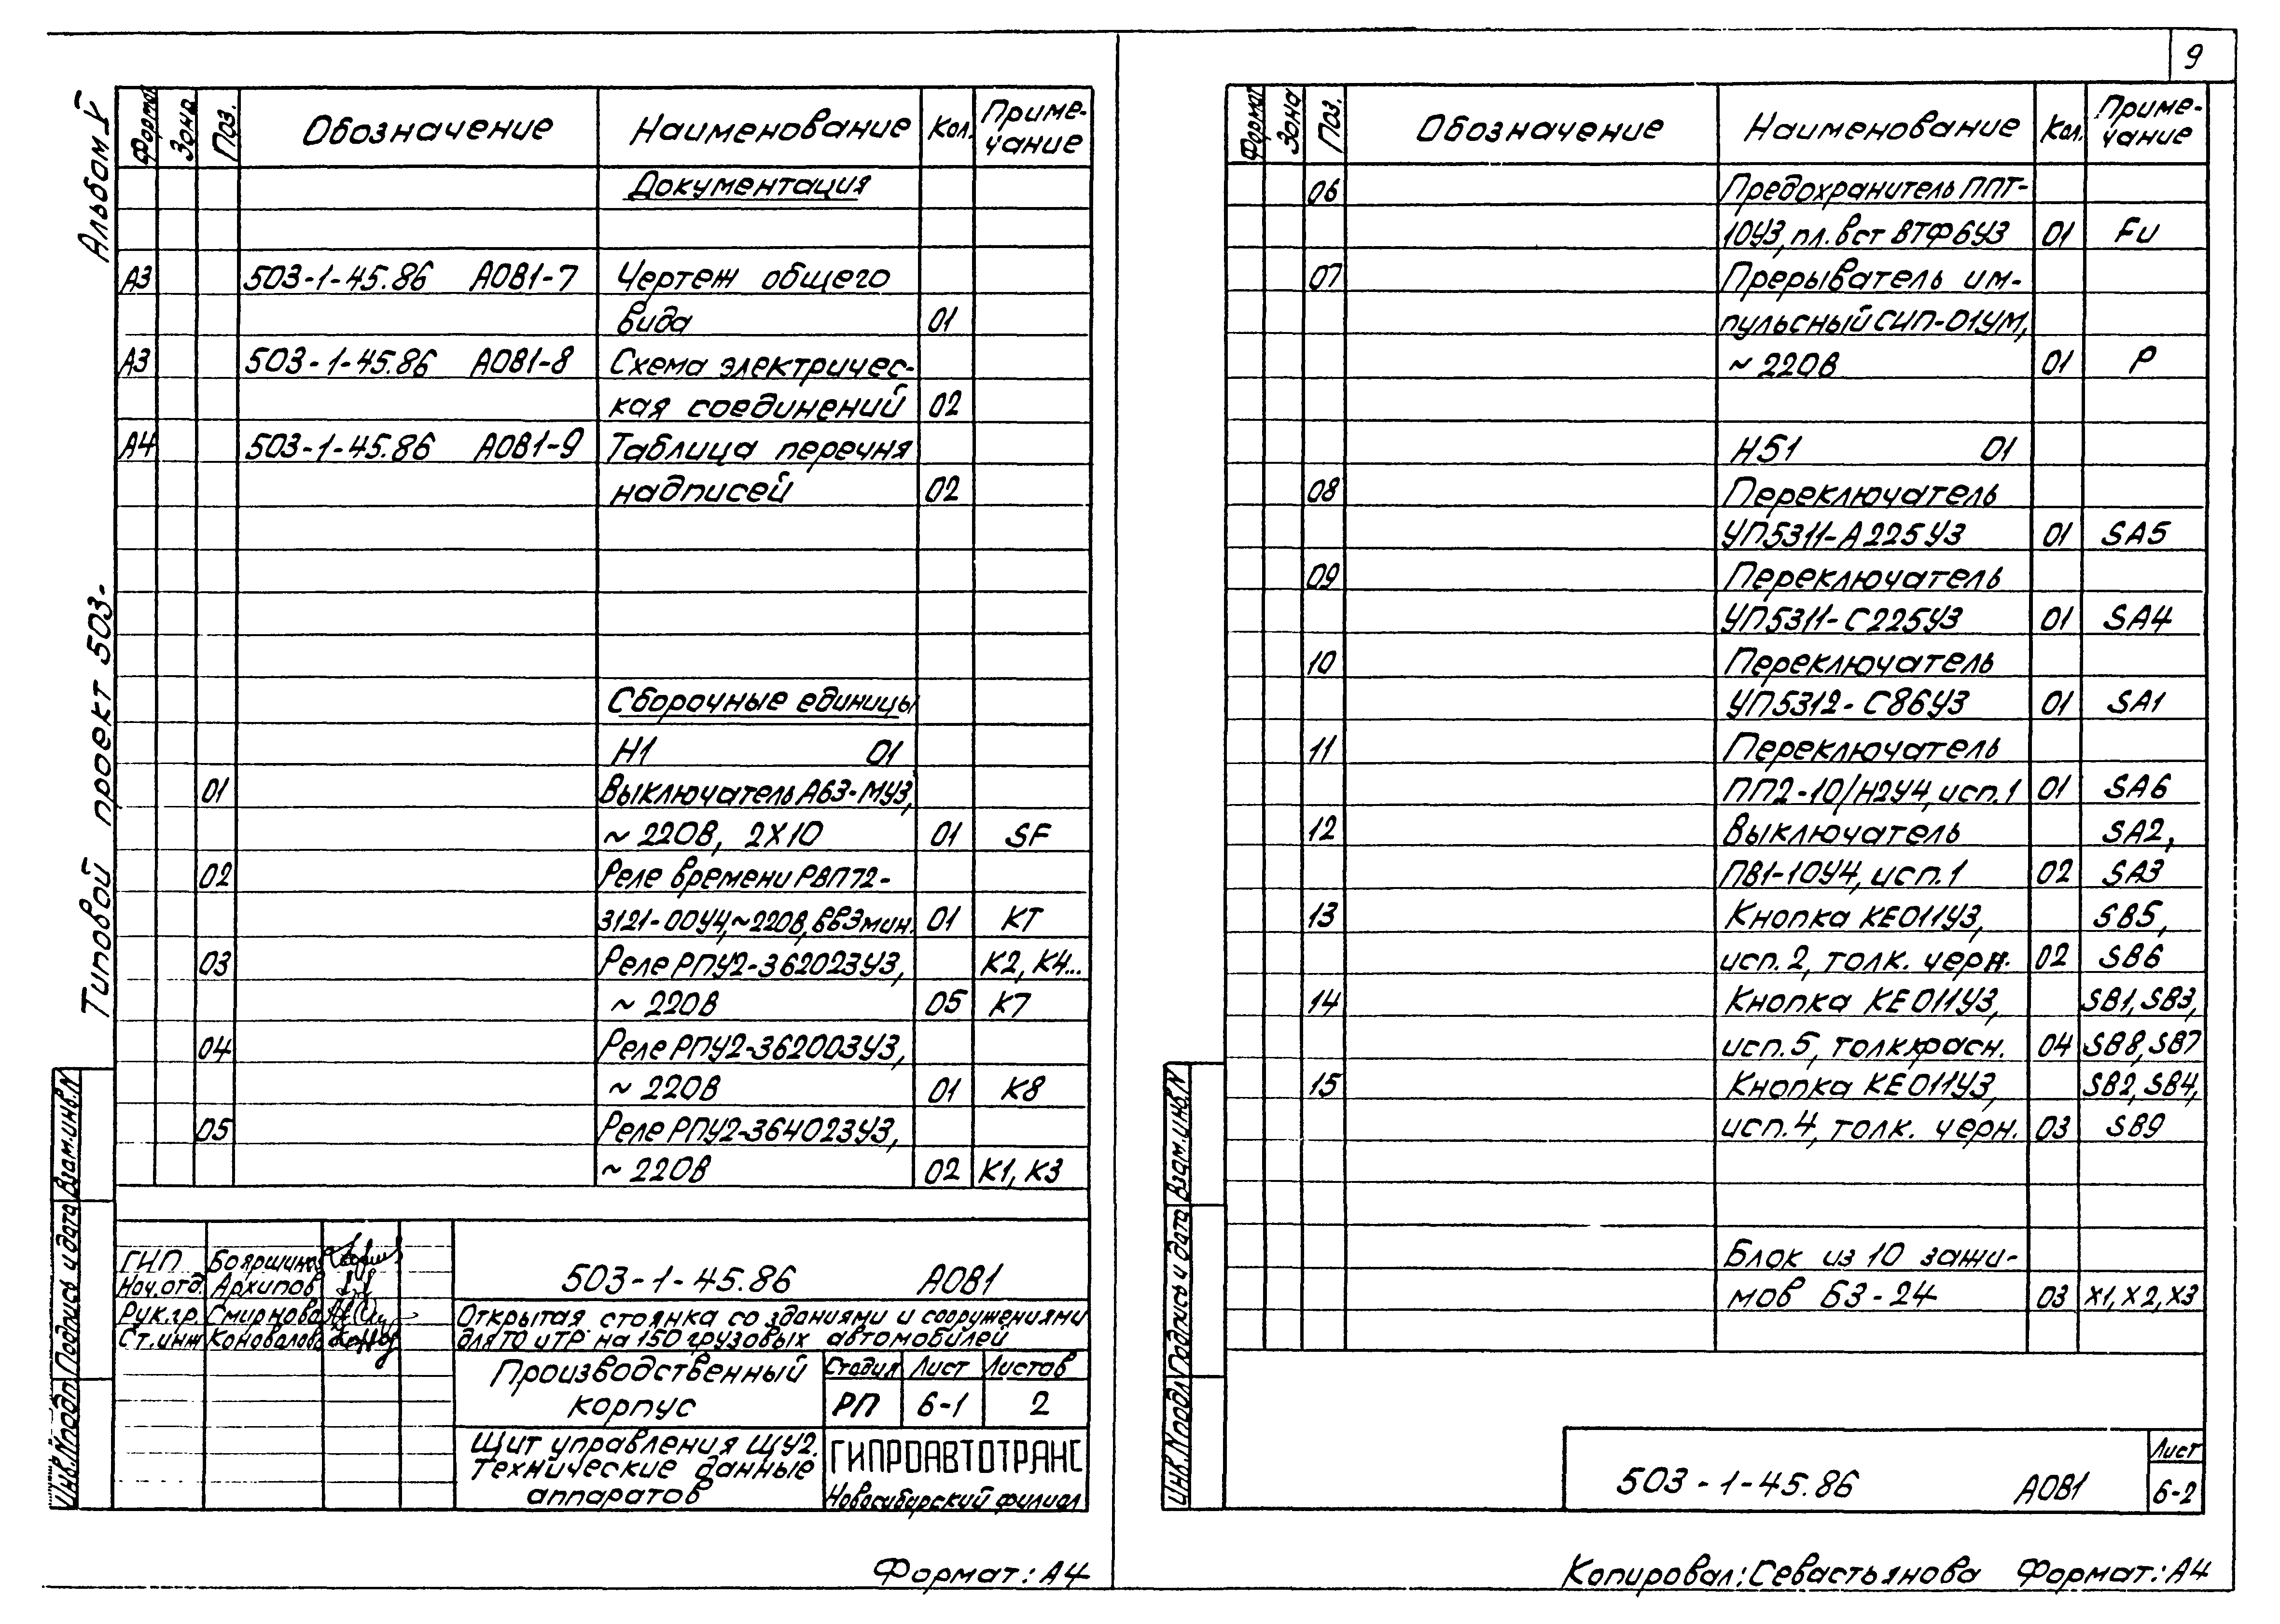 9
Альбом V
Типовой проект 503-
Формат Зона Поз. Обозначение Наименование Кол. Приме-
чание
Документация
А3 503-1-45.86 АОВ1-7 Чертеж общего
вида 01
А3 503-1-45.86 АОВ1-8 Схема электричес-
кая соединений 02
А4 503-1-45.86 АОВ1-9 Таблица перечня
надписей 02
Сборочные единицы
Н1 01
01 Выключатель А63-МУ3,
~ 220В, 2Х10 01 SF
02 Реле времени РВП72-
3121-00У4,~220В, ВВ3мин. 01 КТ
03 Реле РПУ2-362023У3, К2, К4...
~ 220В 05 К7
04 Реле РПУ2-362003У3,
~ 220В 01 К8
05 Реле РПУ2-364023У3,
~ 220В 02 К1, К3
Взам.инв.N
Подпись и дата
Инв.N подл
ГИП Бояршинов
Нач.отд. Архипов
Рук.гр. Смирнова
Ст.инж Коновалова
503-1-45.86 АОВ1
Открытая стоянка со зданиями и сооружениями
для ТО и ТР на 150 грузовых автомобилей
Производственный
корпус
Стадия Лист Листов
РП 6-1 2
Щит управления ЩУ2.
Технические данные
аппаратов
ГИПРОАВТОТРАНС
Новосибирский филиал
Формат: А4
Формат Зона Поз. Обозначение Наименование Кол. Приме-
чание
06 Предохранитель ППТ-
10У3, пл. вст ВТФ6У3 01 Fu
07 Прерыватель им-
пульсный СИП-01УМ,
~ 220В 01 Р
Н51 01
08 Переключатель
УП5311-А225У3 01 SA5
09 Переключатель
УП5311-С225У3 01 SA4
10 Переключатель
УП5312-С86У3 01 SA1
11 Переключатель
ПП2-10/Н2У4, исп.1 01 SA6
12 Выключатель SA2,
ПВ1-10У4, исп.1 02 SA3
13 Кнопка КЕ011У3, SB5,
исп. 2, толк. черн. 02 SB6
14 Кнопка КЕ011У3, SB1, SB3,
исп. 5, толк.красн. 04 SB8, SB7
15 Кнопка КЕ011У3, SB2, SB4,
исп. 4, толк. черн. 03 SB9
Блок из 10 зажи-
мов БЗ-24 03 Х1, Х2, Х3
Взам.инв.N
Подпись и дата
Инв.N подл
503-1-45.86 АОВ1
Лист
6-2
Копировал: Севастьянова Формат: А4